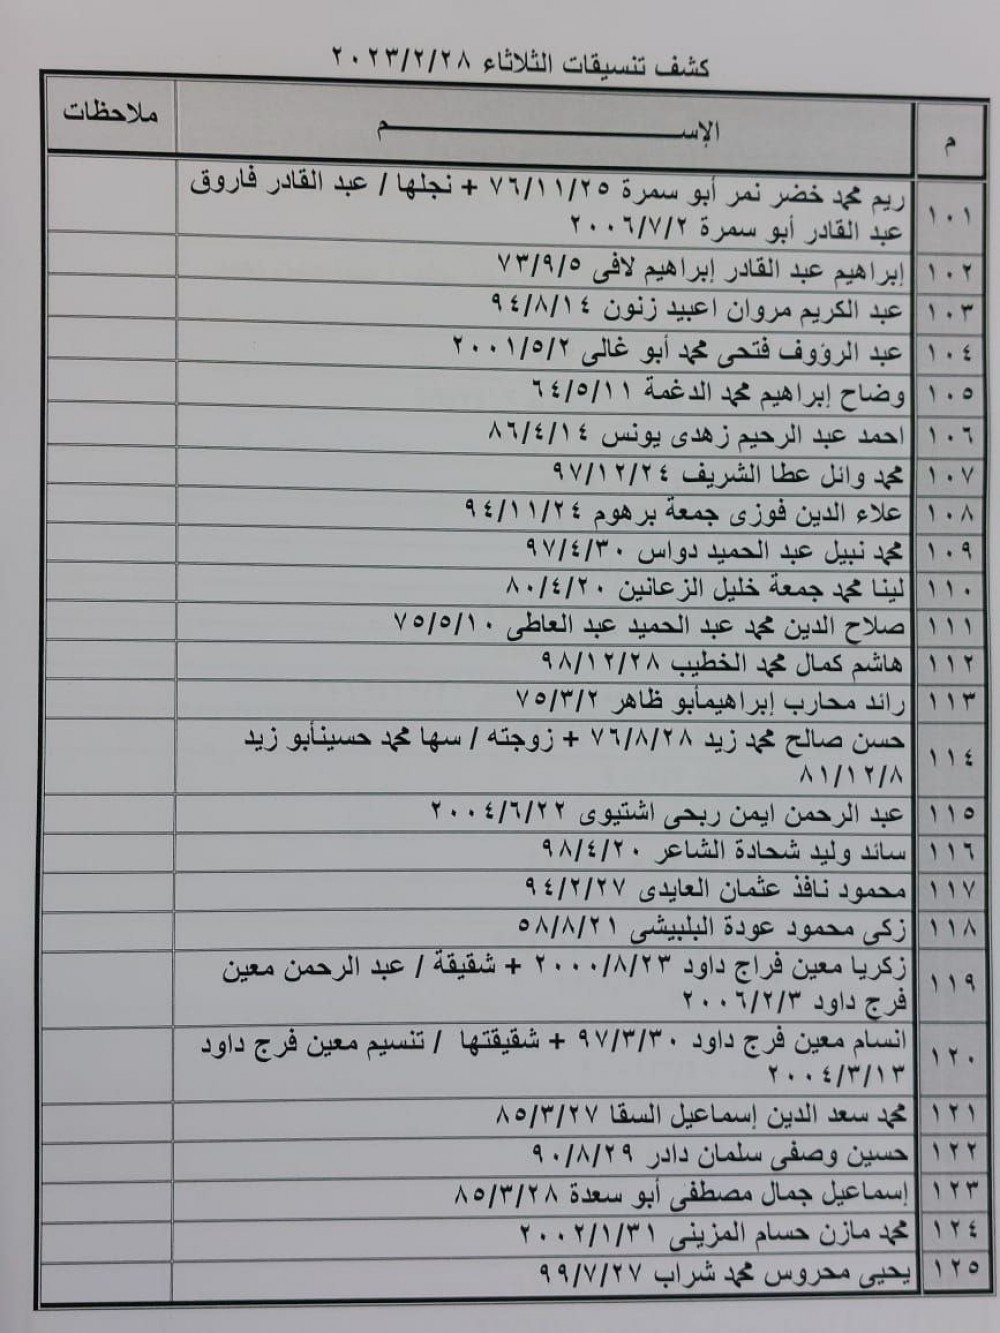 كشف تنسيقات الثلاثاء ٢٠٢٣/٢/٢٨
م الإســـــــم ملاحظات
١٠١ ريم محمد خضر نمر أبو سمرة ٧٦/١١/٢٥ + نجلها / عبد القادر فاروق
عبد القادر أبو سمرة ٢٠٠٦/٧/٢
١٠٢ إبراهيم عبد القادر إبراهيم لافى ٧٣/٩/٥
١٠٣ عبد الكريم مروان اعبيد زنون ٩٤/٨/١٤
١٠٤ عبد الرؤوف فتحى محمد أبو غالى ٢٠٠١/٥/٢
١٠٥ وضاح إبراهيم محمد الدغمة ٦٤/٥/١١
١٠٦ احمد عبد الرحيم زهدى يونس ٨٦/٤/١٤
١٠٧ محمد وائل عطا الشريف ٩٧/١٢/٢٤
١٠٨ علاء الدين فوزى جمعة برهوم ٩٤/١١/٢٤
١٠٩ محمد نبيل عبد الحميد دواس ٩٧/٤/٣٠
١١٠ لينا محمد جمعة خليل الزعانين ٨٠/٤/٢٠
١١١ صلاح الدين محمد عبد الحميد عبد العاطى ٧٥/٥/١٠
١١٢ هاشم كمال محمد الخطيب ٩٨/١٢/٢٨
١١٣ رائد محارب إبراهيمأبو ظاهر ٧٥/٣/٢
١١٤ حسن صالح محمد زيد ٧٦/٨/٢٨ + زوجته / سها محمد حسينأبو زيد
٨١/١٢/٨
١١٥ عبد الرحمن ايمن ربحى اشتيوى ٢٠٠٤/٦/٢٢
١١٦ سائد وليد شحادة الشاعر ٩٨/٤/٢٠
١١٧ محمود نافذ عثمان العايدى ٩٤/٢/٢٧
١١٨ زكى محمود عودة البلبيشى ٥٨/٨/٢١
١١٩ زكريا معين فراج داود ٢٠٠٠/٨/٢٣ + شقيقة / عبد الرحمن معين
فرج داود ٢٠٠٦/٢/٣
١٢٠ انسام معين فرج داود ٩٧/٣/٣٠ + شقيقتها / تنسيم معين فرج داود
٢٠٠٤/٣/١٣
١٢١ محمد سعد الدين إسماعيل السقا ٨٥/٣/٢٧
١٢٢ حسين وصفى سلمان دادر ٩٠/٨/٢٩
١٢٣ إسماعيل جمال مصطفى أبو سعدة ٨٥/٣/٢٨
١٢٤ محمد مازن حسام المزينى ٢٠٠٢/١/٣١
١٢٥ يحيى محروس محمد شراب ٩٩/٧/٢٧